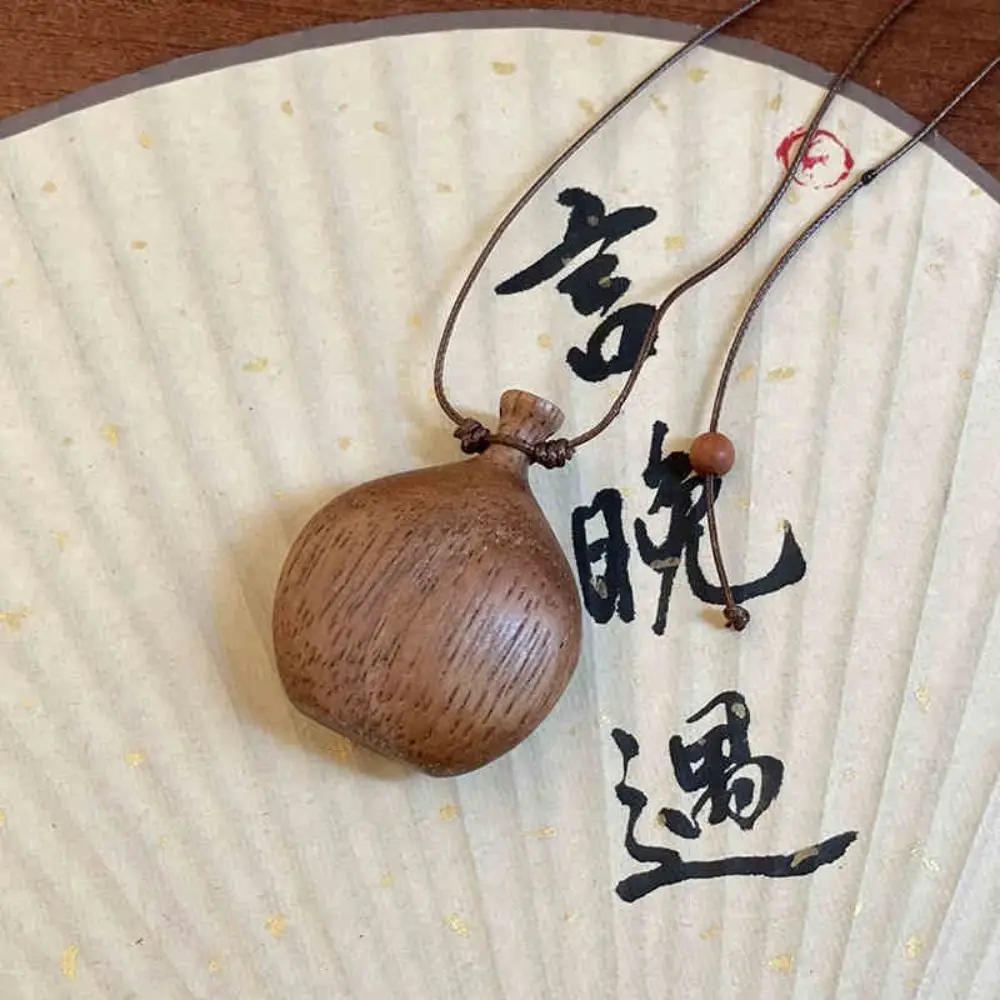 言晚遇